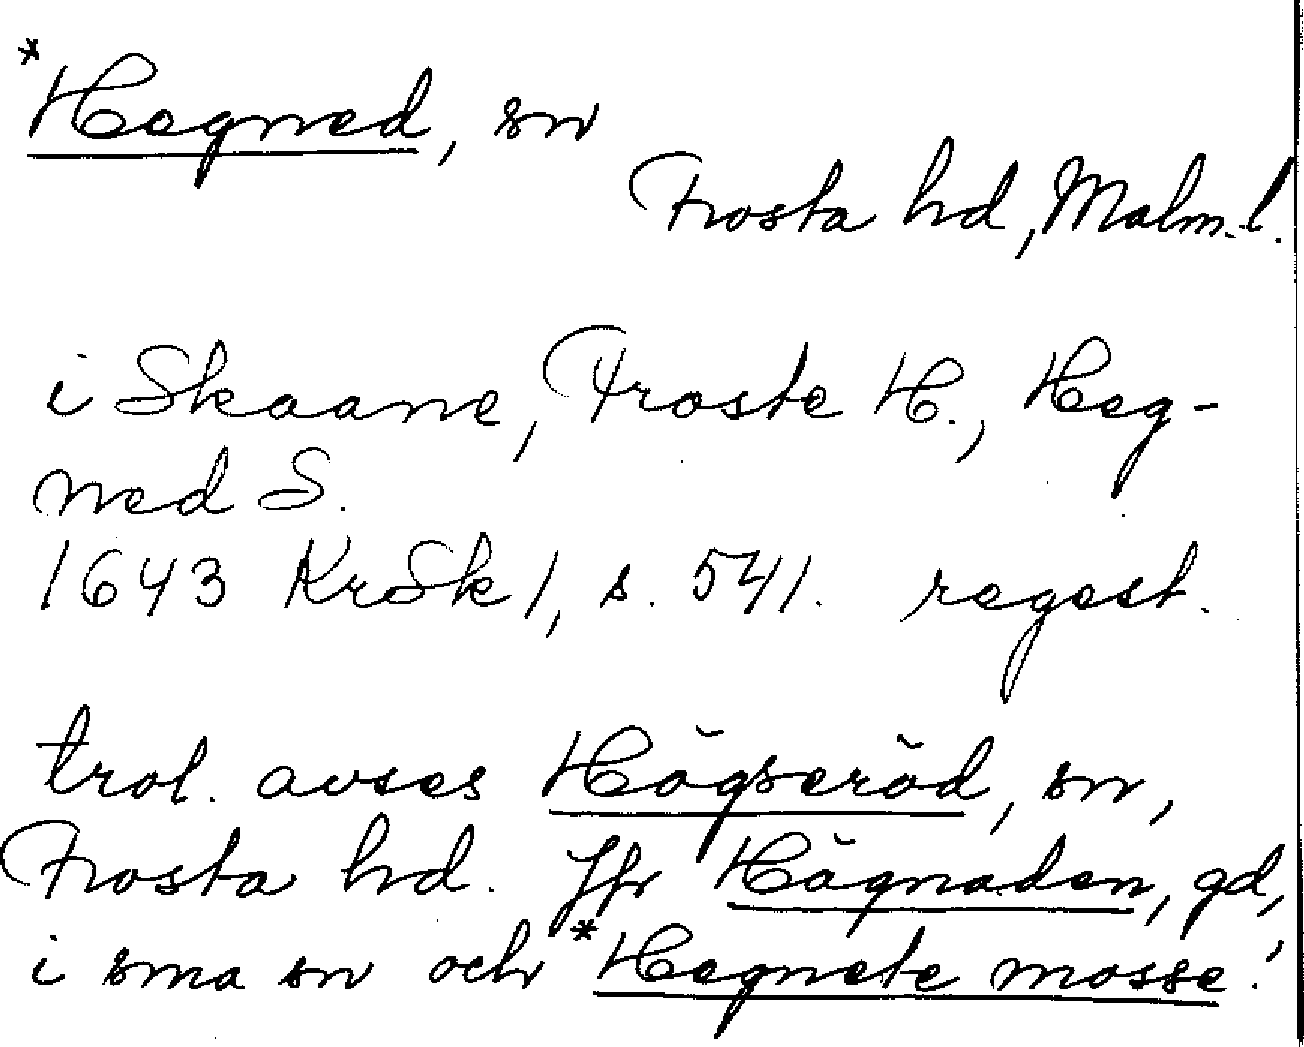 *Hegned, sn
Frosta hd, Malm.l.
i Skaane, Froste H., Heg-
ned S.
1643 KrSk 1, s. 541. regest.
trol. avses Högseröd, sn,
Frosta hd. Jfr Hägnaden, gd,
i sma sn och *Hegnete mosse.'